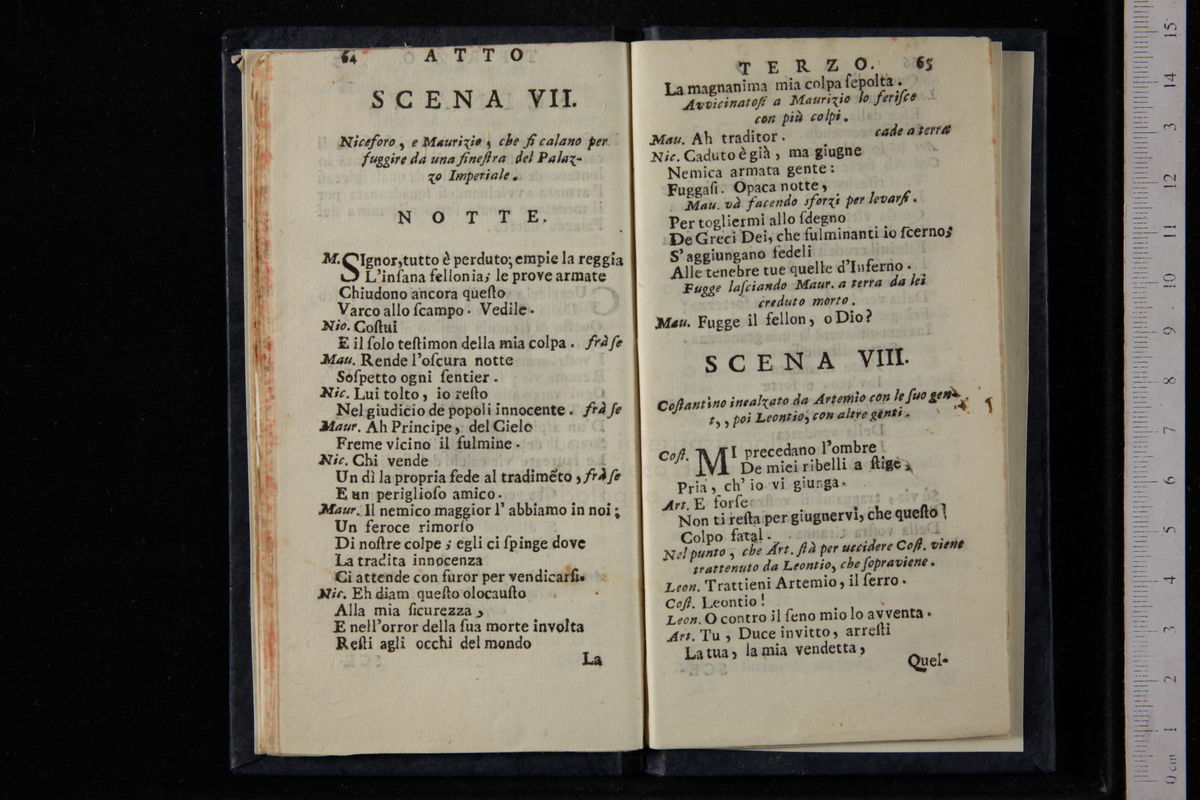 64 ATTO
SCENA VII.
Niceforo, e Maurizio, che ſi calano per
fuggire da una fineſtra del Palaz-
zo Imperiale.
NOTTE.
M. SIgnor, tutto è perduto; empie la reggia
L'inſana fellonia; le prove armate
Chiudono ancora queſto
Varco allo ſcampo. Vedile.
Nic. Coſtui
E il ſolo teſtimon della mia colpa. frà ſe
Mau. Rende l'oſcura notte
Soſpetto ogni ſentier.
Nic. Lui tolto, io reſto
Nel giudicio de popoli innocente. frà ſe
Maur. Ah Principe, del Cielo
Freme vicino il fulmine.
Nic. Chi vende
Un dì la propria fede al tradimẽto, frà ſe
E un periglioſo amico.
Maur. Il nemico maggior l'abbiamo in noi;
Un feroce rimorſo
Di noſtre colpe; egli ci ſpinge dove
La tradita innocenza
Ci attende con furor per vendicarſi.
Nic. Eh diam queſto olocauſto
Alla mia ſicurezza,
E nell'orror della ſua morte involta
Reſti agli occhi del mondo
La
TERZO. 65
La magnanima mia colpa ſepolta.
Avvicinatoſi a Maurizio lo feriſce
con più colpi.
Mau. Ah traditor. cade a terra
Nic. Caduto è già, ma giugne
Nemica armata gente:
Fuggaſi. Opaca notte,
Mau. và facendo sforzi per levarſi.
Per togliermi allo ſdegno
De Greci Dei, che fulminanti io ſcerno;
S'aggiungano fedeli
Alle tenebre tue quelle d'Inferno.
Fugge laſciando Maur. a terra da lei
creduto morto.
Mau. Fugge il fellon, o Dio?
SCENA VIII.
Coſtantino inealzato da Artemio con le ſuo gen-
t,, poi Leontio, con altre genti.
Coſt. MI precedano l'ombre
De miei ribelli a ſtige,
Pria, ch'io vi giunga.
Art. E forſe
Non ti reſta per giugnervi, che queſto
Colpo fatal.
Nel punto, che Art. ſtà per uccidere Coſt. viene
trattenuto da Leontio, che ſopraviene.
Leon. Trattieni Artemio, il ferro.
Coſt. Leontio!
Leon. O contro il ſeno mio lo avventa.
Art. Tu, Duce invitto, arreſti
La tua, la mia vendetta,
Quel-